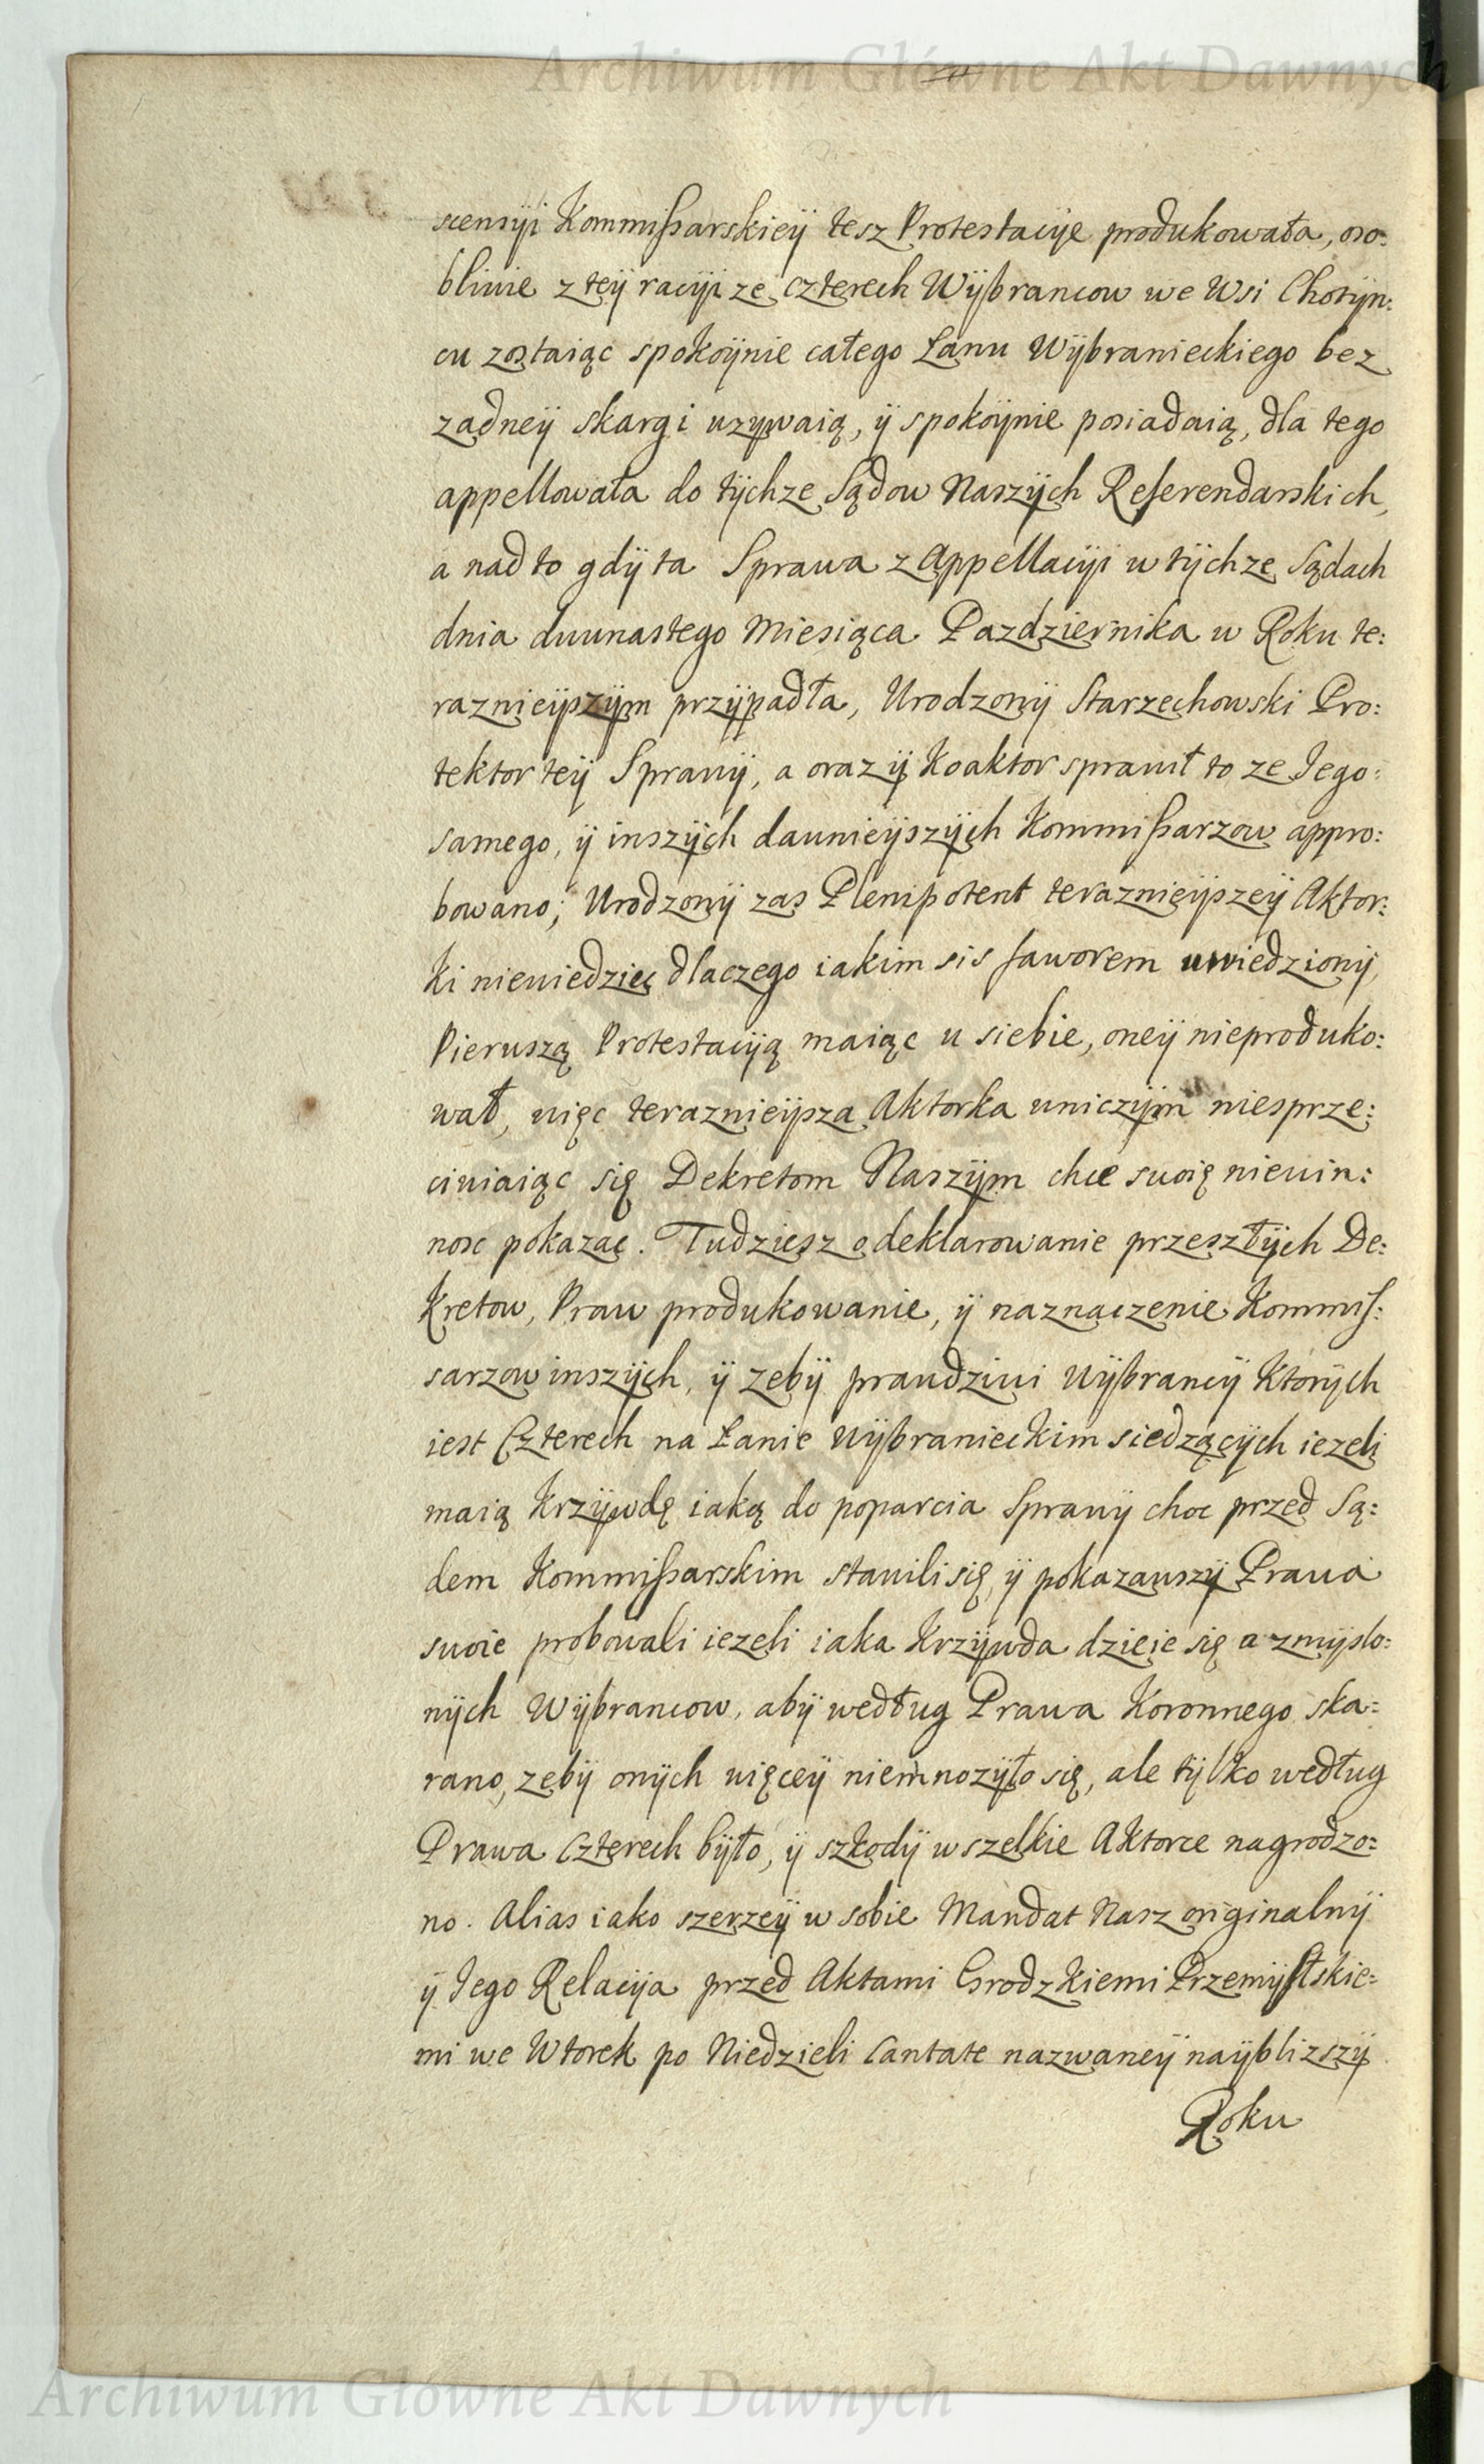 Archiwum Główne Akt Dawnych
scensyi Kommissarskiey tesz Protestacye produkowała, oso:
bliwie z tey racyi ze czterech Wybrancow we Wsi Chotyn:
cu zostaiąc spokoynie całego Łanu Wybranieckiego bez
zadney skargi uzywaią, y spokoynie posiadaią, dla tego
appellowała do tychze Sądow Naszych Referendarskich,
a nad to gdy ta Sprawa z Appellacyi w tychze Sądach
dnia dwunastego Miesiąca Pazdziernika w Roku te:
raznieyszym przypadła, Urodzony Starzechowski Pro:
tektor tey Sprawy, a oraz y Koaktor sprawił to ze Jego:
samego, y inszych dawnieyszych Kommissarzow appro:
bowano; Urodzony zas Plenipotent teraznieyszey Aktor:
ki niewiedziec dlaczego iakim sis faworem uwiedziony,
Pierwszą Protestacyą maiąc u siebie, oney nieproduko:
wał, więc teraznieysza Aktorka w niczym niesprze:
ciwiaiąc się Dekretom Naszym chce swoię niewin:
nosc pokazac. Tudziesz o deklarowanie przeszłych De:
kretow, Praw produkowanie, y naznaczenie Kommis:
sarzow inszych, y zeby prawdziwi Wybrancy ktorych
iest Czterech na Łanie Wybranieckim siedzących iezeli
maią krzywdę iaką do poparcia Sprawy choc przed Są:
dem Kommissarskim stawili się, y pokazawszy Prawa
swoie probowali iezeli iaka krzywda dzieie się a zmyslo:
nych Wybrancow, aby według Prawa Koronnego ska:
rano, zeby onych więcey niemnozyło się, ale tylko według
Prawa czterech było, y szkody wszelkie Aktorce nagrodzo:
no. Alias iako szerzey w sobie Mandat Nasz originalny
y Jego Relacya przed Aktami Grodzkiemi Przemysłskie:
mi we Wtorek po Niedzieli Cantate nazwaney nayblizszy
Roku
Archiwum Główne Akt Dawnych